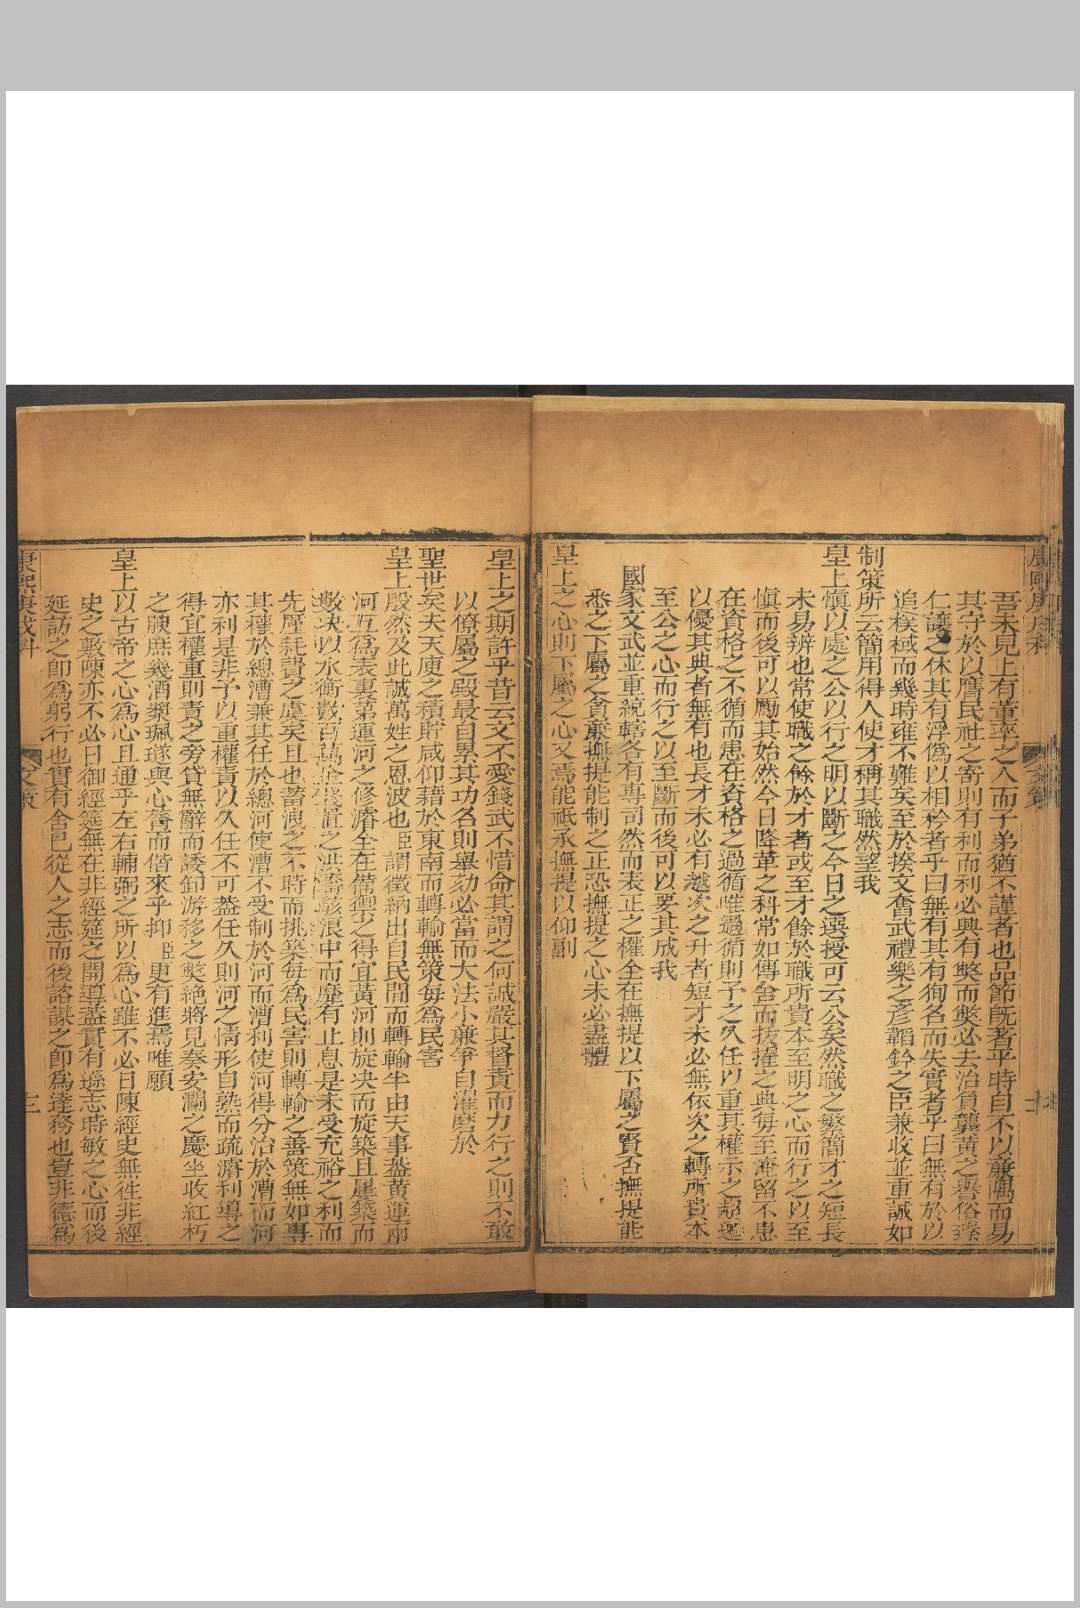 吾未見上有董率之人而子弟猶不謹者也品節既著平時自不以廉隅而易
其守於以膺民社之寄則有利而利必興有獘而獘必去治負龔黃之譽俗臻
仁讓之休其有浮僞以相矜者乎曰無有其有狥名而失實者乎曰無有於以
追棫樸而幾時雍不難矣至於揆文奮武禮樂之彥韜鈐之臣兼收並重誠如
制策所云簡用得人使才稱其職然望我
皇上愼以處之公以行之明以斷之今日之遠授可云公矣然職之繁簡才之短長
未易辨也常使職之餘於才者或至才餘於職所貴本至明之心而行之以至
愼而後可以勵其始然今日陞華之科常如傳舍而拔擢之典每至濟留不患
在資格之不循而患在資格之過循唯過循則予之久任以重其權示之超選
以優其典者無有也長才未必有越次之升者短才未必無依次之轉所貴本
至公之心而行之以至斷而後可以要其成我
國家文武並重統轄各有專司然而表正之權全在撫提以下屬之賢否撫提能
悉之下屬之貪廉撫提能制之正恐撫提之心未必盡體
皇上之心則下屬之心又焉能祇承撫提以仰副
皇上之期許乎昔云文不愛錢武不惜命其謂之何誠嚴其督責而力行之則不敢
以僚屬之殿最自累其功名則舉劾必當而大法小廉爭自濯磨於
聖世矣夫天庾之積貯咸仰藉於東南而轉輸無策每為民害
皇上殷然及此誠萬姓之恩波也臣謂徵納出自民間而轉輸半由天事葢黃運兩
河互爲表裏第運河之修濬全在備禦之得宜黃河則旋決而旋築且屢築而
數決以水衡數百萬金錢置之洪濤駭浪中而靡有止息是未受充裕之利而
先罹耗費之虞矣且也蓄洩之不時而挑築每爲民害則轉輸之善策無如專
其權於總漕兼其任於總河使漕不受制於河而漕利使河得分治於漕而河
亦利是非予以重權責以久任不可葢任久則河之情形自熟而疏濬利導之
得宜權重則責之旁貸無辭而諉卸游移之獘絕將見奏安瀾之慶坐收紅朽
之腴庶幾酒漿珮璲與心膂而偕來乎抑臣更有進焉唯願
皇上以古帝之心為心且通乎左右輔弼之所以為心雖不必日陳經史無徃非經
史之敷陳亦不必日御經筵無在非經筵之開導葢實有遜志時敏之心而後
延訪之卽爲躬行也實有舍己從人之志而後諮諏之卽爲達務也豈非德爲
康熙庚戌科
文策